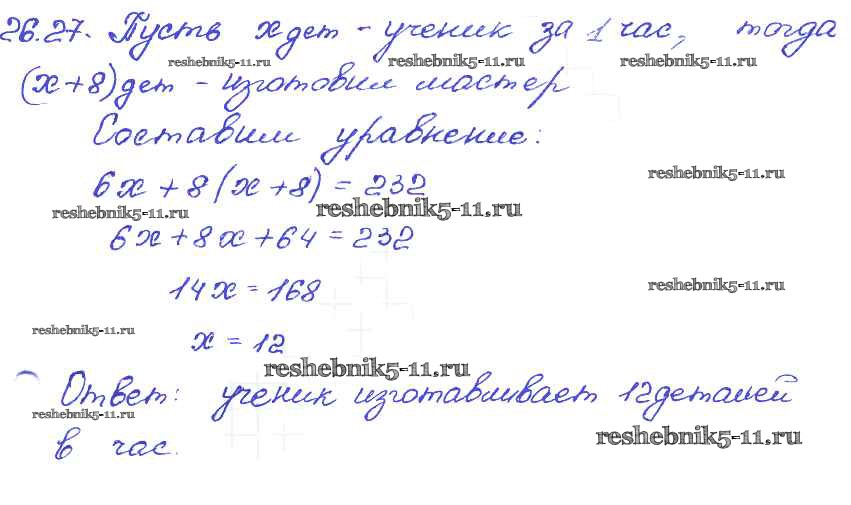 26.27. Пусть x дет - ученик за 1 час, тогда
reshebnik5-11.ru reshebnik5-11.ru reshebnik5-11.ru
(x+8) дет - изготовил мастер
Составим уравнение:
reshebnik5-11.ru
6x + 8(x+8) = 232
reshebnik5-11.ru reshebnik5-11.ru
6x + 8x + 64 = 232
14x = 168
reshebnik5-11.ru
reshebnik5-11.ru
x = 12
reshebnik5-11.ru
Ответ: ученик изготавливает 12 деталей
reshebnik5-11.ru
в час.
reshebnik5-11.ru